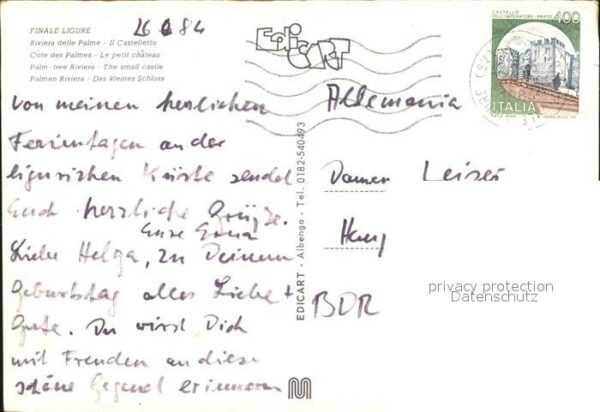 26 6 84
FINALE LIGURE
Riviera delle Palme - Il Castelletto
Côte des Palmes - Le petit château
Palm-tree Riviera - The small castle
Palmen Riviera - Das kleines Schloss
Von meinen herrlichen
Ferientagen an der
ligurischen Küste sendet
Euch herzliche Grüße.
Eure Erna
Liebe Helga, zu Deinem
Geburtstag alles Liebe +
Gute. Du wirst Dich
mit Freuden an diese
schöne Gegend erinnern
EDICART - Albenga - Tel. 0182-540493
EDICART
CASTELLO
DELL'IMPERATORE - PRATO
400
ITALIA
Allemania
Damen Leiser
BDR
privacy protection
Datenschutz